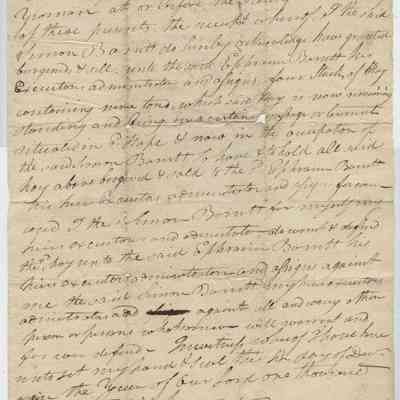 Yeoman at or before the
of these presents the receipt whereof I the said
Simon Barrett do hereby acknowledge have granted
bargained & sell unto the said Ephraim Barrett his
Executors administrators and assigns four Stacks of Hay
containing nine tons, which said Hay is now remaining
standing and being in a certain
situate in Hope & now in the occupation of
the said Simon Barrett To have & to hold all said
hay above bargained & sold to the sd Ephraim Barrett
his heirs Executors administrators and assigns for ever
and I the sd Simon Barrett for myself my
heirs executors and administrators do warrant & defend
the sd hay unto the said Ephraim Barrett his
heirs executors administrators and assigns against
me the said Simon Barrett my heirs executors
administrators and against all and every other
person or persons whomsoever will warrant and
for ever defend. In witness whereof I have here
unto set my hand & seal the day of
the Year of Our Lord one thousand